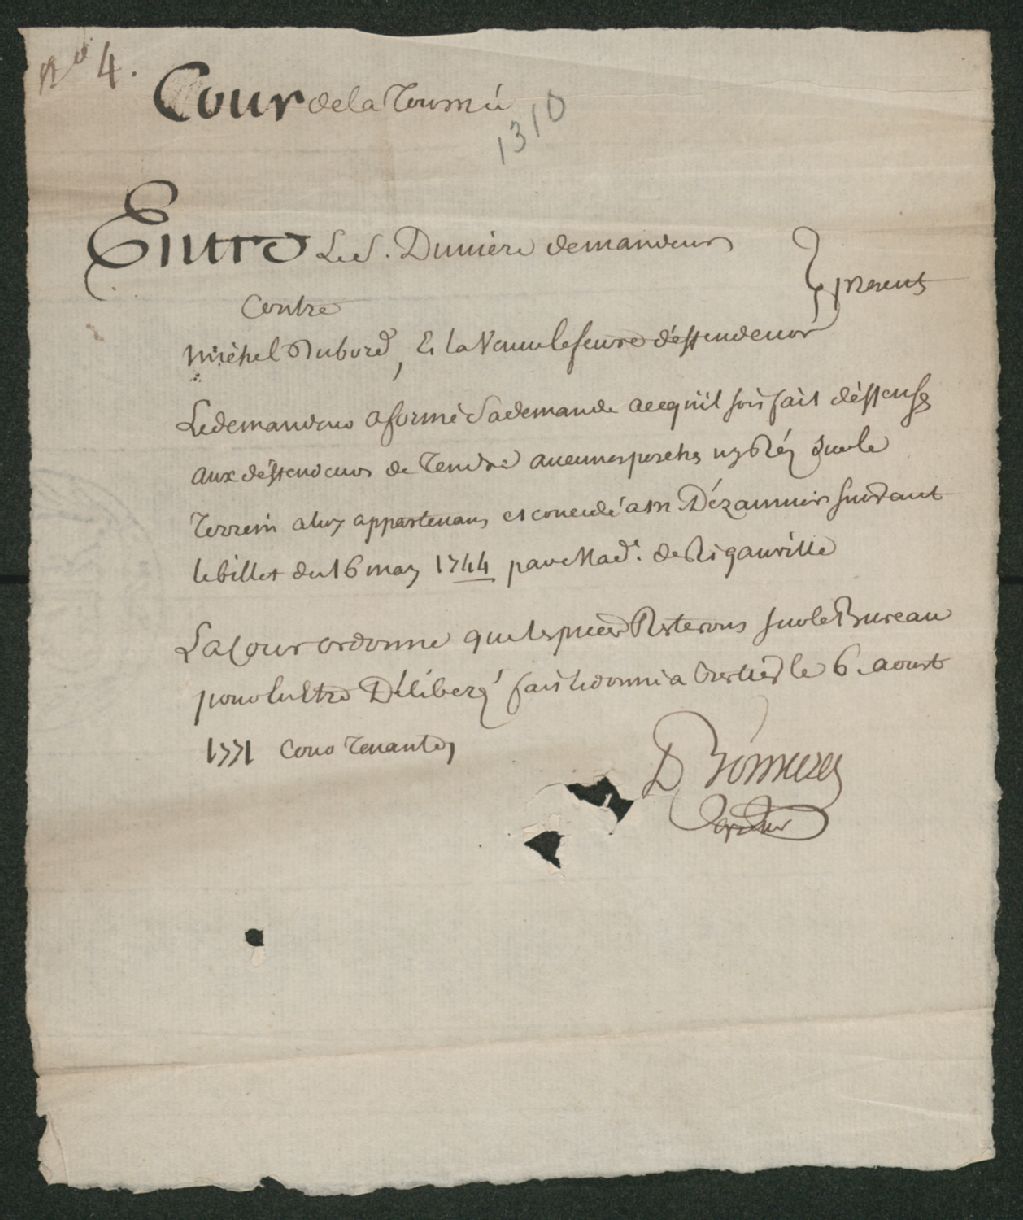 No 4.
Cour de la Tournée
1310
Entre Le S. Dunière demandeur
présents
Contre
Michel Dubord, Et la Veuve lefevre déffendeurs
Le demandeur a formé Sa demande acequil soit fait déffenses
aux déffendeurs de Tendre aucunes pesches ny Rés Sur le
Terrein a luy appartenant, et concedé a Mr Dézaunier suivant
le billet du 16 may 1744 par Mad.e de Rigauville
La Cour ordonne que les pieces Resterons sur le Bureau
pour En Etre Déliberé fait et donné a le 6. aoust
1771 Cour Tenante,